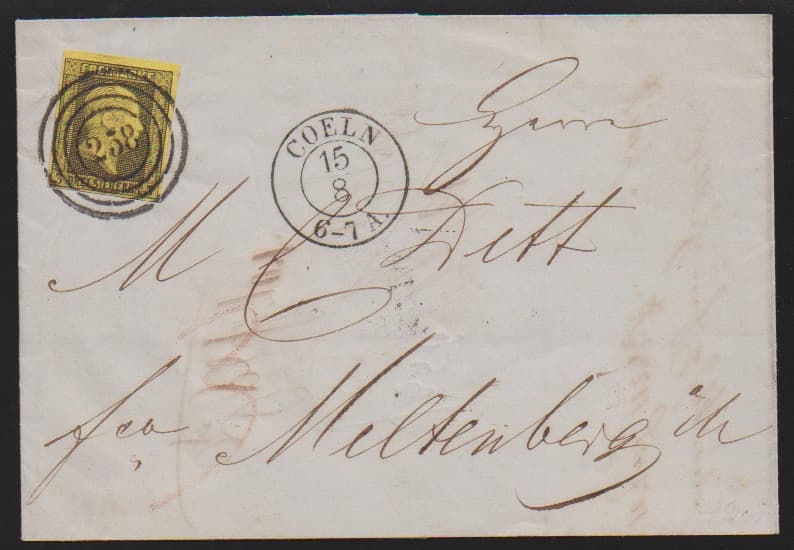 FREIMARKE
258
SILBERGR.
COELN
15
8
6-7 A.
Herrn
M C Dett
fco Miltenberg